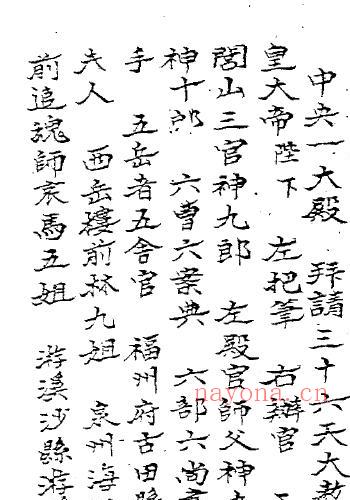 中央一大殿 拜請三十六天大
皇大帝陛下 左把筆 右辦官
閭山三官神九郎 左殿官師父神九
神十郎 六曹六案典 六部六尚
手 五岳者五舍官 福州府古田縣
夫人 西岳樓前林九姐 泉州海
前追魂師哀馬五姐 游溪沙縣游
nayona.cn